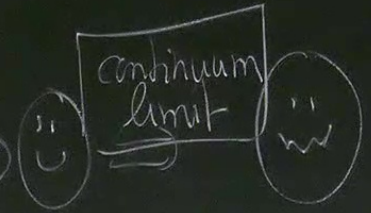 continuum
limit